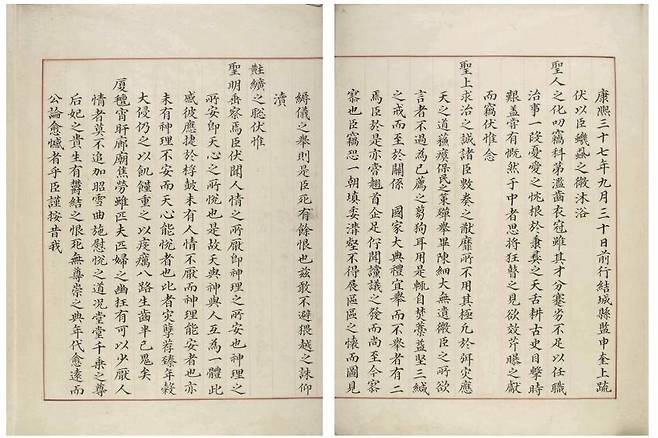 康熙三十七年九月三十日前行結城縣監申奎上疏
伏以臣蟣蝨之微沐浴
聖人之化叨竊科第濫齒衣冠雖其才分蹇劣不足以任職
治事一段憂愛之忱根於秉彝之天古耕古史目擊時
艱盖嘗有慨然于中者思將狂瞽之見欲效芹曝之獻
而竊伏惟念
聖上求治之誠諸臣數奏之猷靡所不用其極凡於弭灾應
天之道瘼保民之策殫擧畢陳細大無遺微臣之所欲
言者不過爲已廌之芻狗耳用是輒自焚藁益堅三緘
之戒而至於關係 國家大典禮宜擧而不擧者有二
焉臣於是亦嘗翹首企足佇聞讜議之發而尚至今寥
寥也臣竊恐一朝塡委溝壑不得展區區之懷而圖見
縟儀之擧則是臣死有餘恨也玆敢不避猥越之誅仰
瀆
黈纊之聦伏惟
聖明垂察焉臣伏聞人情之所厭卽神理之所安也神理之
所安卽天心之所悅也是故天與神與人互爲一體此
感彼應捷於桴皷未有人情不厭而神理能安者也亦
未有神理不安而天心能悅者也比者灾孼荐臻年穀
大侵仍之以飢饉重之以疫癘八路生齒半已鬼矣
厦氊宵旰廊廟焦勞雖匹夫匹婦之幽枉有可以少厭人
情者莫不追加昭雪曲施慰悅之道況堂堂千乘之尊
后妃之貴生有欝結之恨死無尊崇之典年代愈遠而
公論愈憾者乎臣謹按昔我